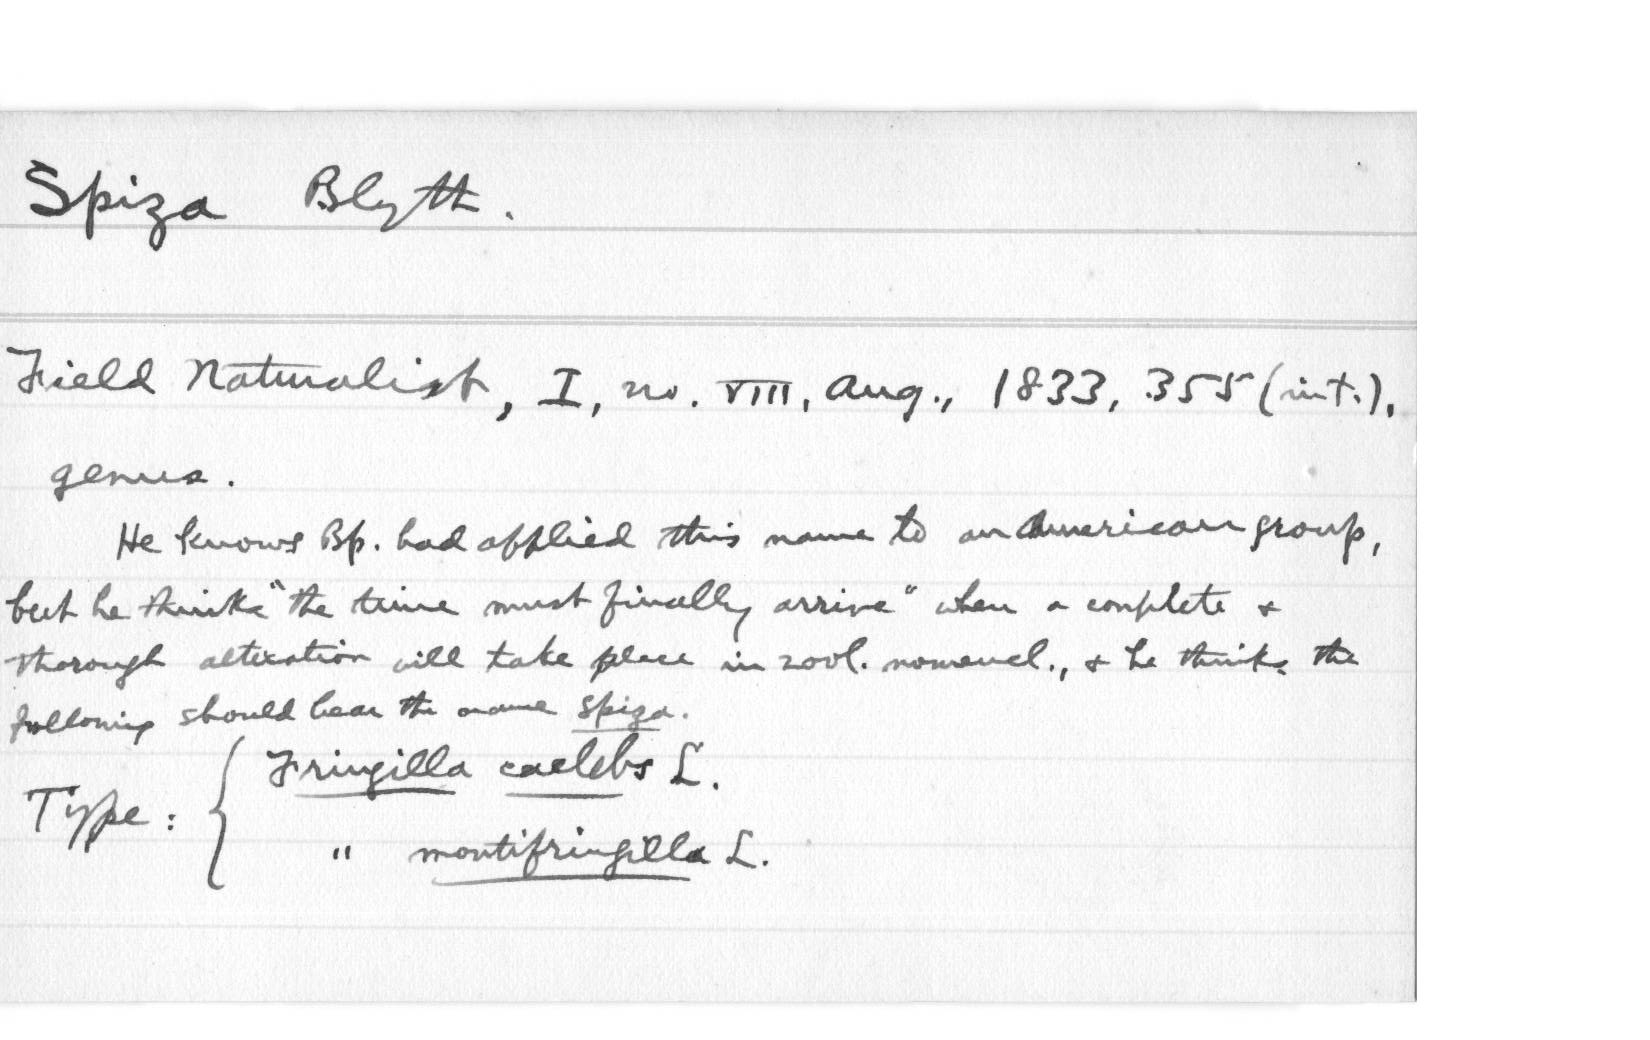 Spiza Blyth.
Field Naturalist, I, no. VIII, Aug., 1833, 355 (int.),
genus.
He knows Bp. had applied this name to an American group,
but he thinks "the time must finally arrive" when a complete &
thorough alteration will take place in zool. nomencl., & he thinks the
following should bear the name Spiza.
Type: { Fringilla caelebs L.
" montifringilla L.